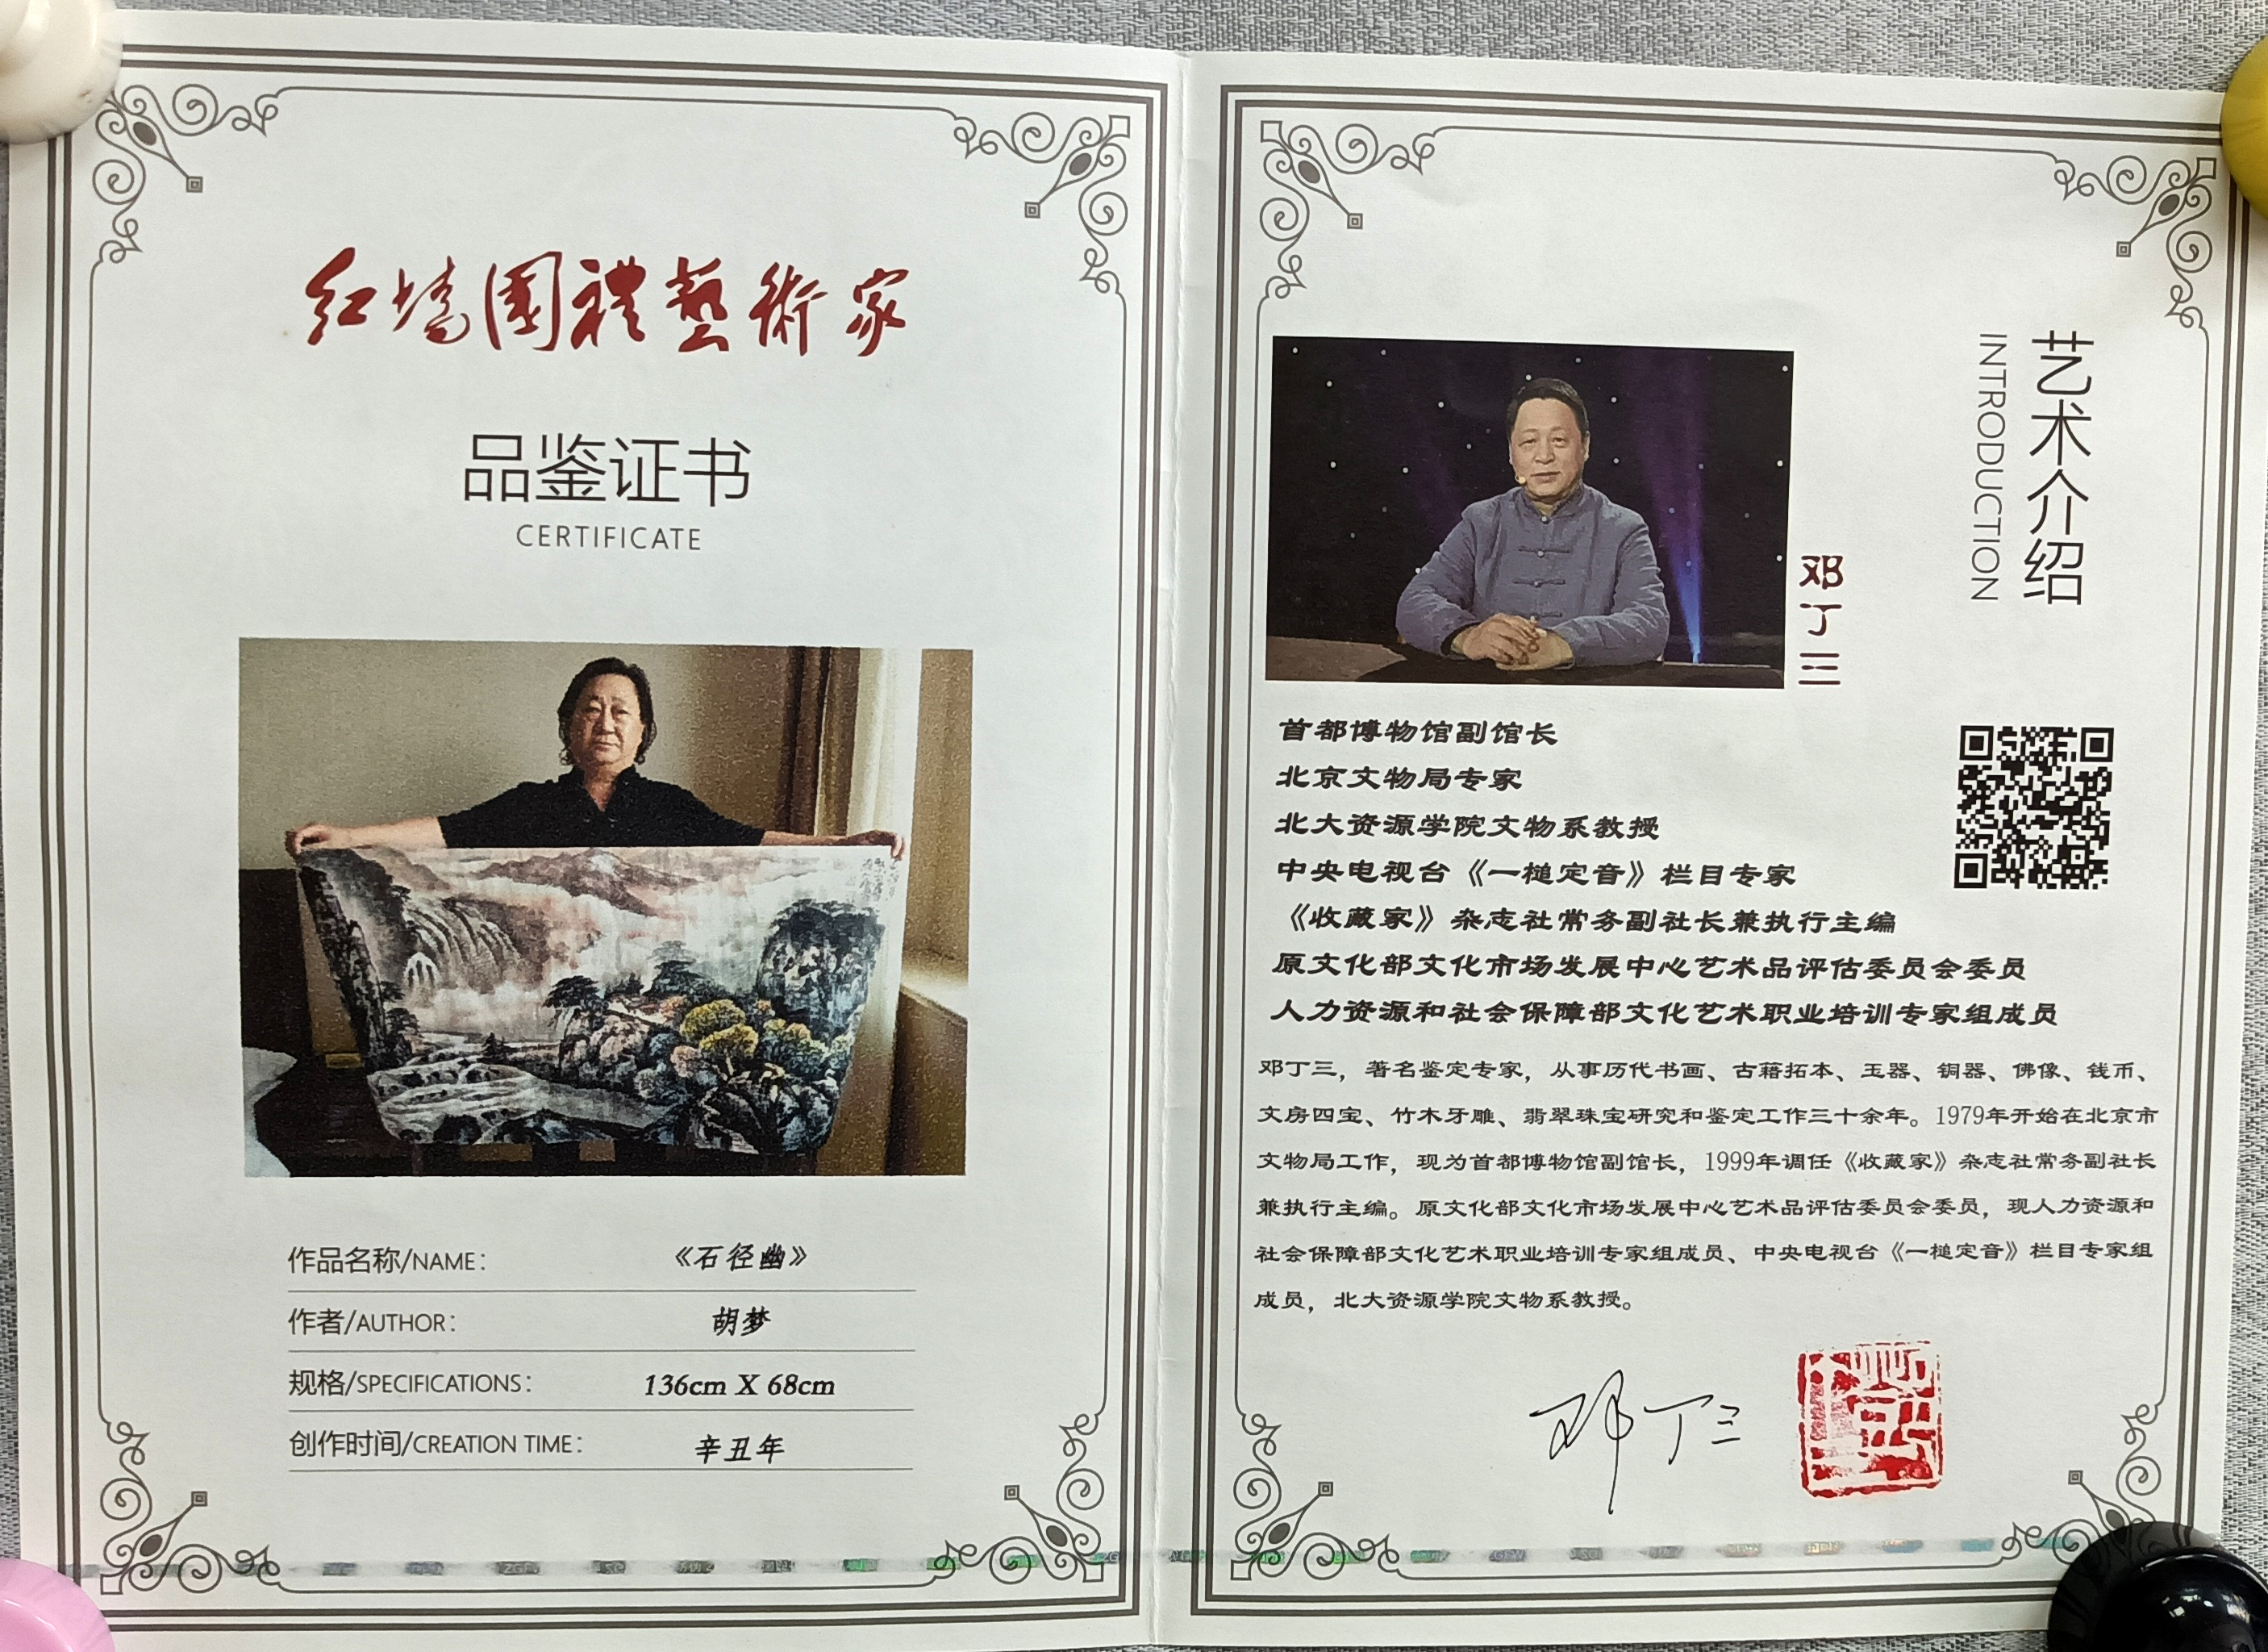 红墙国禮藝術家
品鉴证书
CERTIFICATE
作品名称/NAME： 《石径幽》
作者/AUTHOR： 胡梦
规格/SPECIFICATIONS： 136cm X 68cm
创作时间/CREATION TIME： 辛丑年
艺术介绍
INTRODUCTION
邓丁三
首都博物馆副馆长
北京文物局专家
北大资源学院文物系教授
中央电视台《一槌定音》栏目专家
《收藏家》杂志社常务副社长兼执行主编
原文化部文化市场发展中心艺术品评估委员会委员
人力资源和社会保障部文化艺术职业培训专家组成员
邓丁三，著名鉴定专家，从事历代书画、古藉拓本、玉器、铜器、佛像、钱币、
文房四宝、竹木牙雕、翡翠珠宝研究和鉴定工作三十余年。1979年开始在北京市
文物局工作，现为首都博物馆副馆长，1999年调任《收藏家》杂志社常务副社长
兼执行主编。原文化部文化市场发展中心艺术品评估委员会委员，现人力资源和
社会保障部文化艺术职业培训专家组成员、中央电视台《一槌定音》栏目专家组
成员，北大资源学院文物系教授。
邓丁三